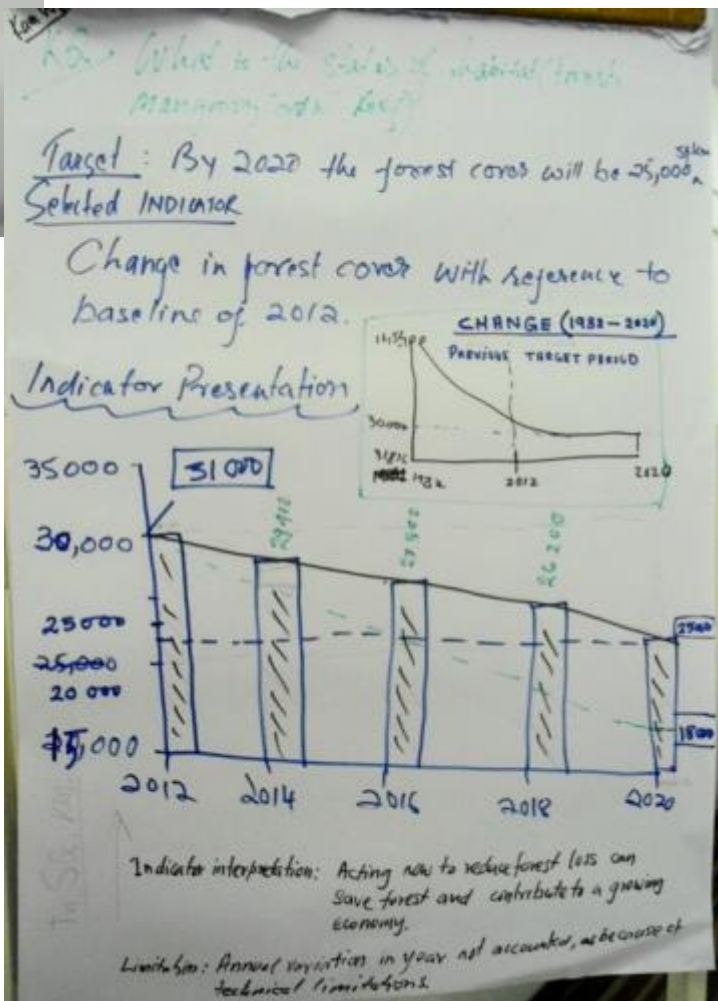 KQ: What is the status of habitat (forest,
mangrove and Reef)
Target: By 2020 the forest cover will be 25,000 sq km
Selected INDICATOR
Change in forest cover with reference to
baseline of 2012.
CHANGE (1982-2020)
PREVIOUS TARGET PERIOD
30000
1982 2012 2020
Indicator Presentation
35000
31 000
30,000
25000
25,000
20 000
15,000
26 200
2500
1800
2012 2014 2016 2018 2020
In SQ. KM.
Indicator interpretation: Acting now to reduce forest loss can
save forest and contribute to a growing
economy.
Limitation: Annual variation in year not accounted, as because of
technical limitations.